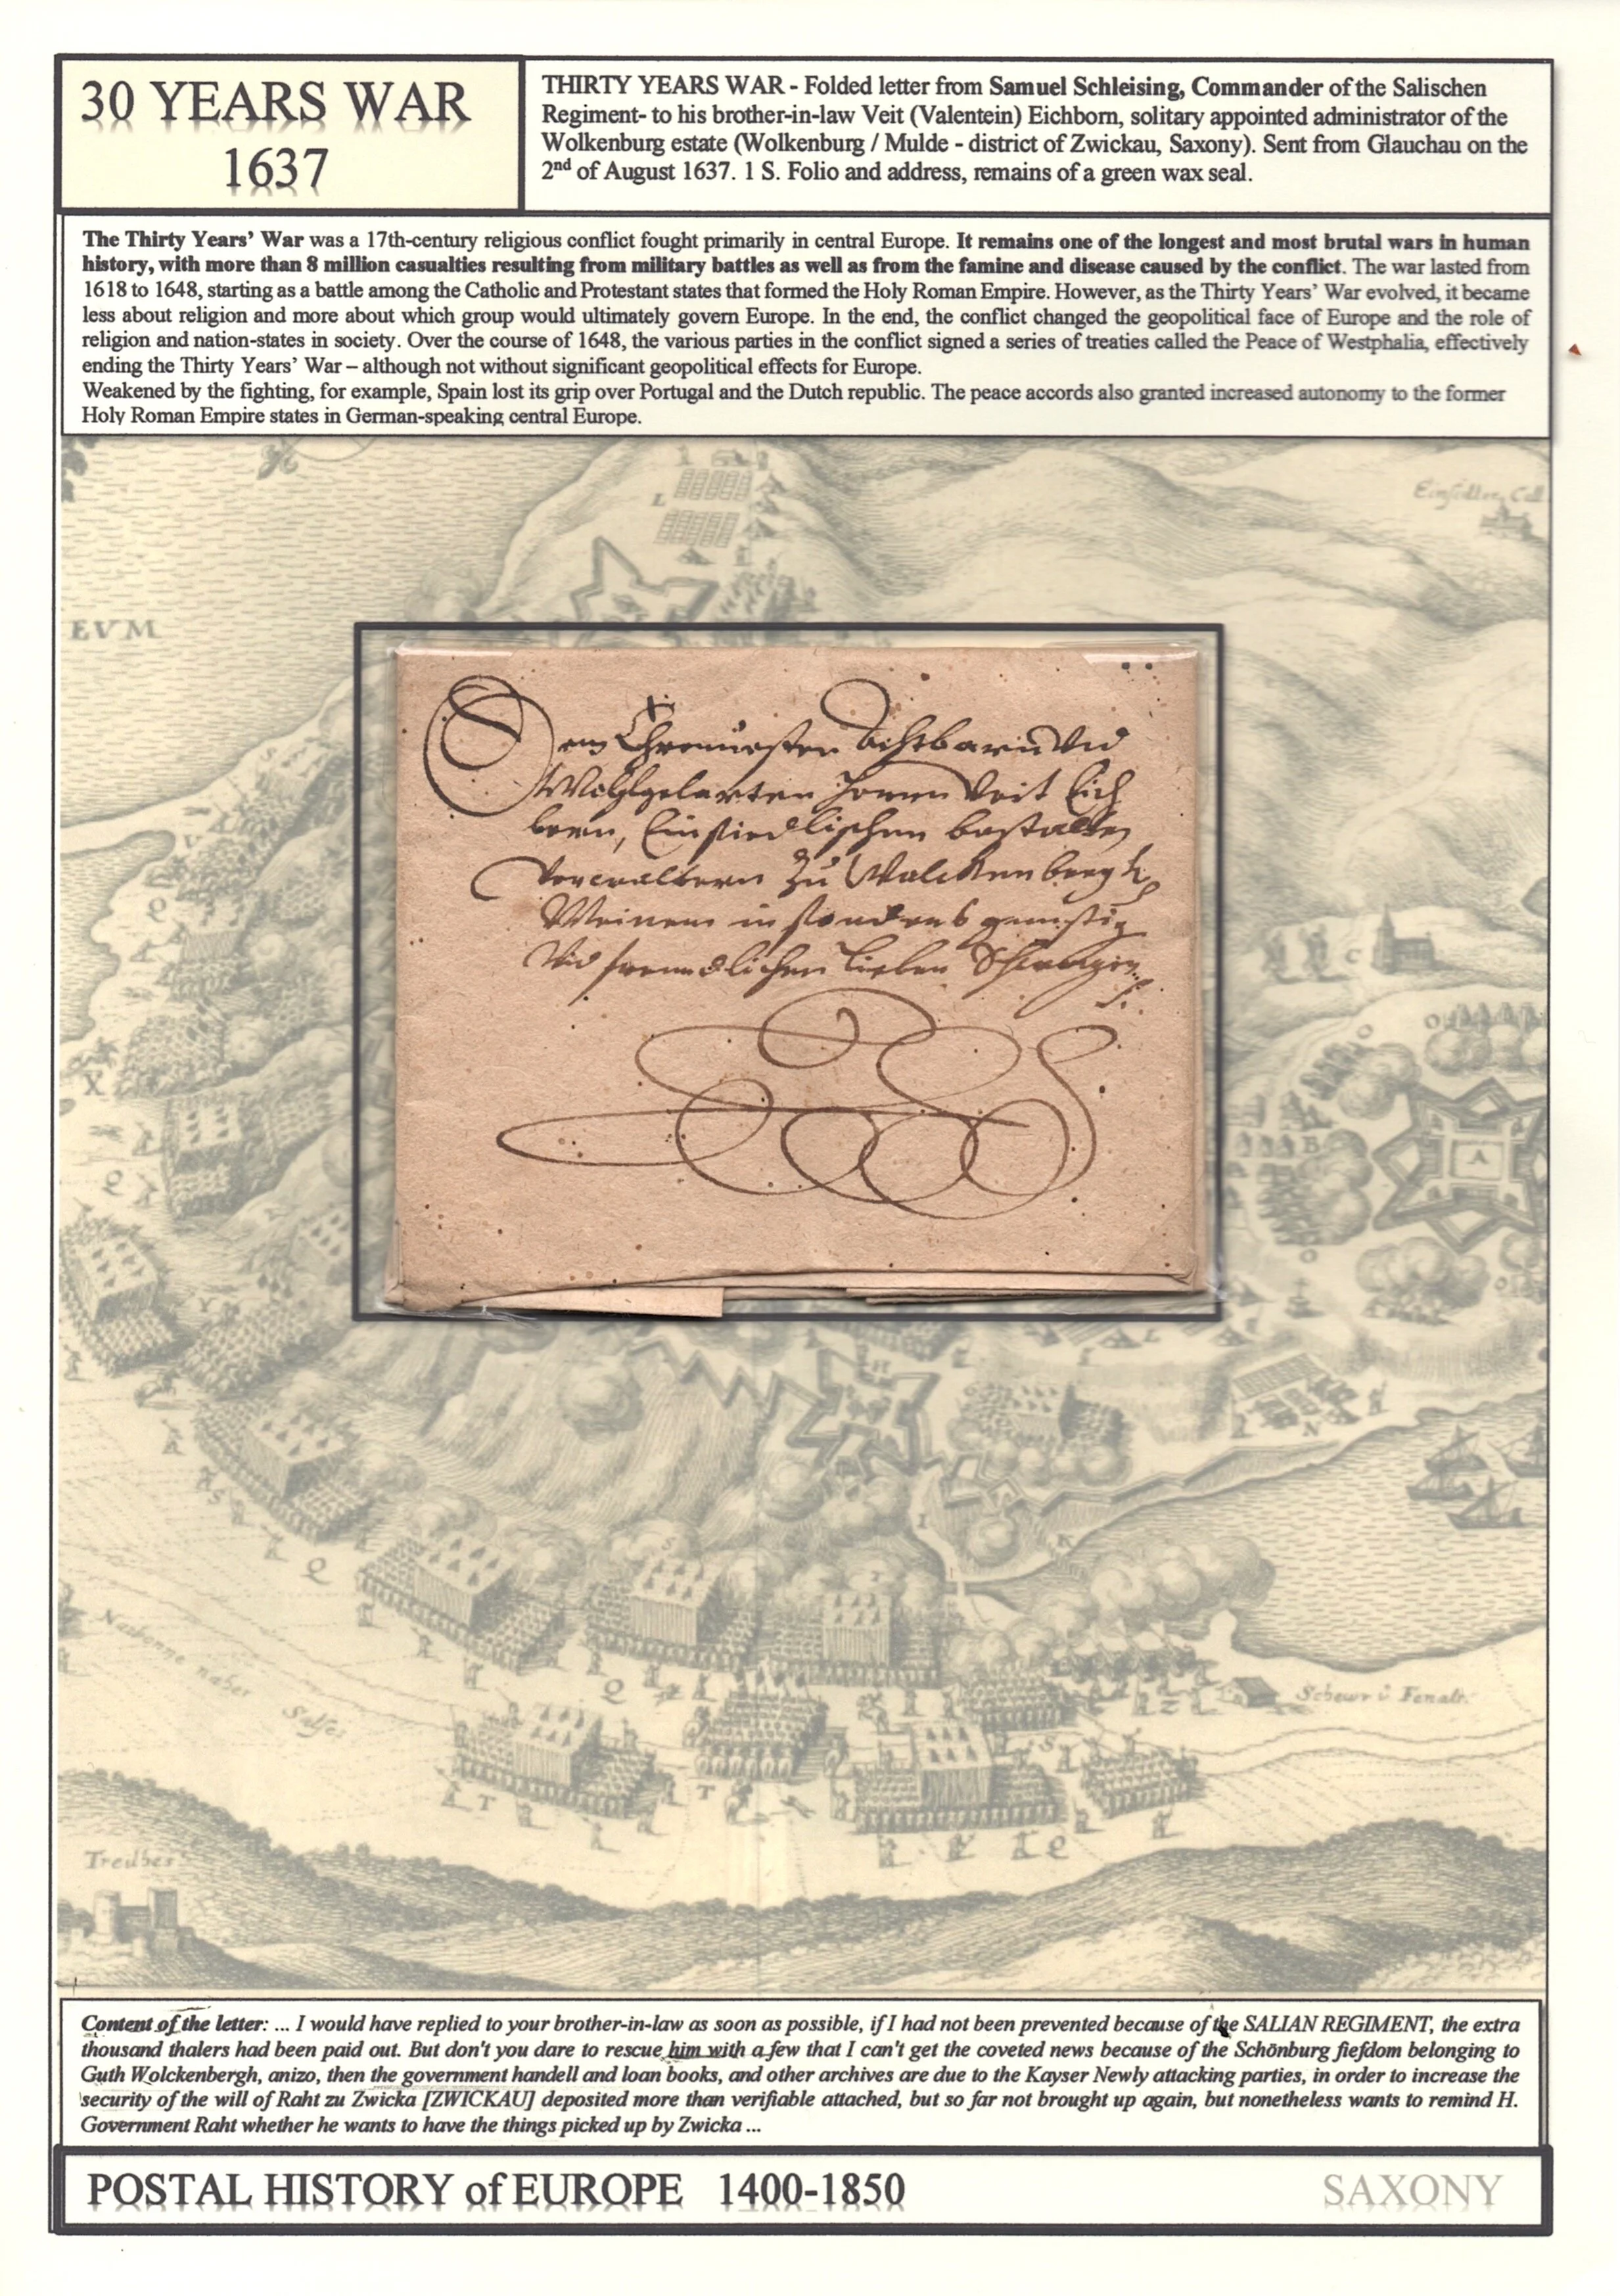 30 YEARS WAR
1637
THIRTY YEARS WAR - Folded letter from Samuel Schleising, Commander of the Salischen
Regiment- to his brother-in-law Veit (Valentein) Eichborn, solitary appointed administrator of the
Wolkenburg estate (Wolkenburg / Mulde - district of Zwickau, Saxony). Sent from Glauchau on the
2nd of August 1637. 1 S. Folio and address, remains of a green wax seal.
The Thirty Years' War was a 17th-century religious conflict fought primarily in central Europe. It remains one of the longest and most brutal wars in human
history, with more than 8 million casualties resulting from military battles as well as from the famine and disease caused by the conflict. The war lasted from
1618 to 1648, starting as a battle among the Catholic and Protestant states that formed the Holy Roman Empire. However, as the Thirty Years' War evolved, it became
less about religion and more about which group would ultimately govern Europe. In the end, the conflict changed the geopolitical face of Europe and the role of
religion and nation-states in society. Over the course of 1648, the various parties in the conflict signed a series of treaties called the Peace of Westphalia, effectively
ending the Thirty Years' War – although not without significant geopolitical effects for Europe.
Weakened by the fighting, for example, Spain lost its grip over Portugal and the Dutch republic. The peace accords also granted increased autonomy to the former
Holy Roman Empire states in German-speaking central Europe.
EVM
Dem Ehrnvesten Achtbarn Vnd
Wohlgelarten Herrn Veit Eich
born, Einsiedlischen bestalten
Verwaltern zu Wolckenbergk
Meinem insonders gunstig
Vnd freundlichen lieben Schwager
Narbonne naher
Salses
Treilhes
Content of the letter: ... I would have replied to your brother-in-law as soon as possible, if I had not been prevented because of the SALIAN REGIMENT, the extra
thousand thalers had been paid out. But don't you dare to rescue him with a few that I can't get the coveted news because of the Schönburg fiefdom belonging to
Guth Wolckenbergh, anizo, then the government handell and loan books, and other archives are due to the Kayser Newly attacking parties, in order to increase the
security of the will of Raht zu Zwicka [ZWICKAU] deposited more than verifiable attached, but so far not brought up again, but nonetheless wants to remind H.
Government Raht whether he wants to have the things picked up by Zwicka ...
POSTAL HISTORY of EUROPE 1400-1850
SAXONY